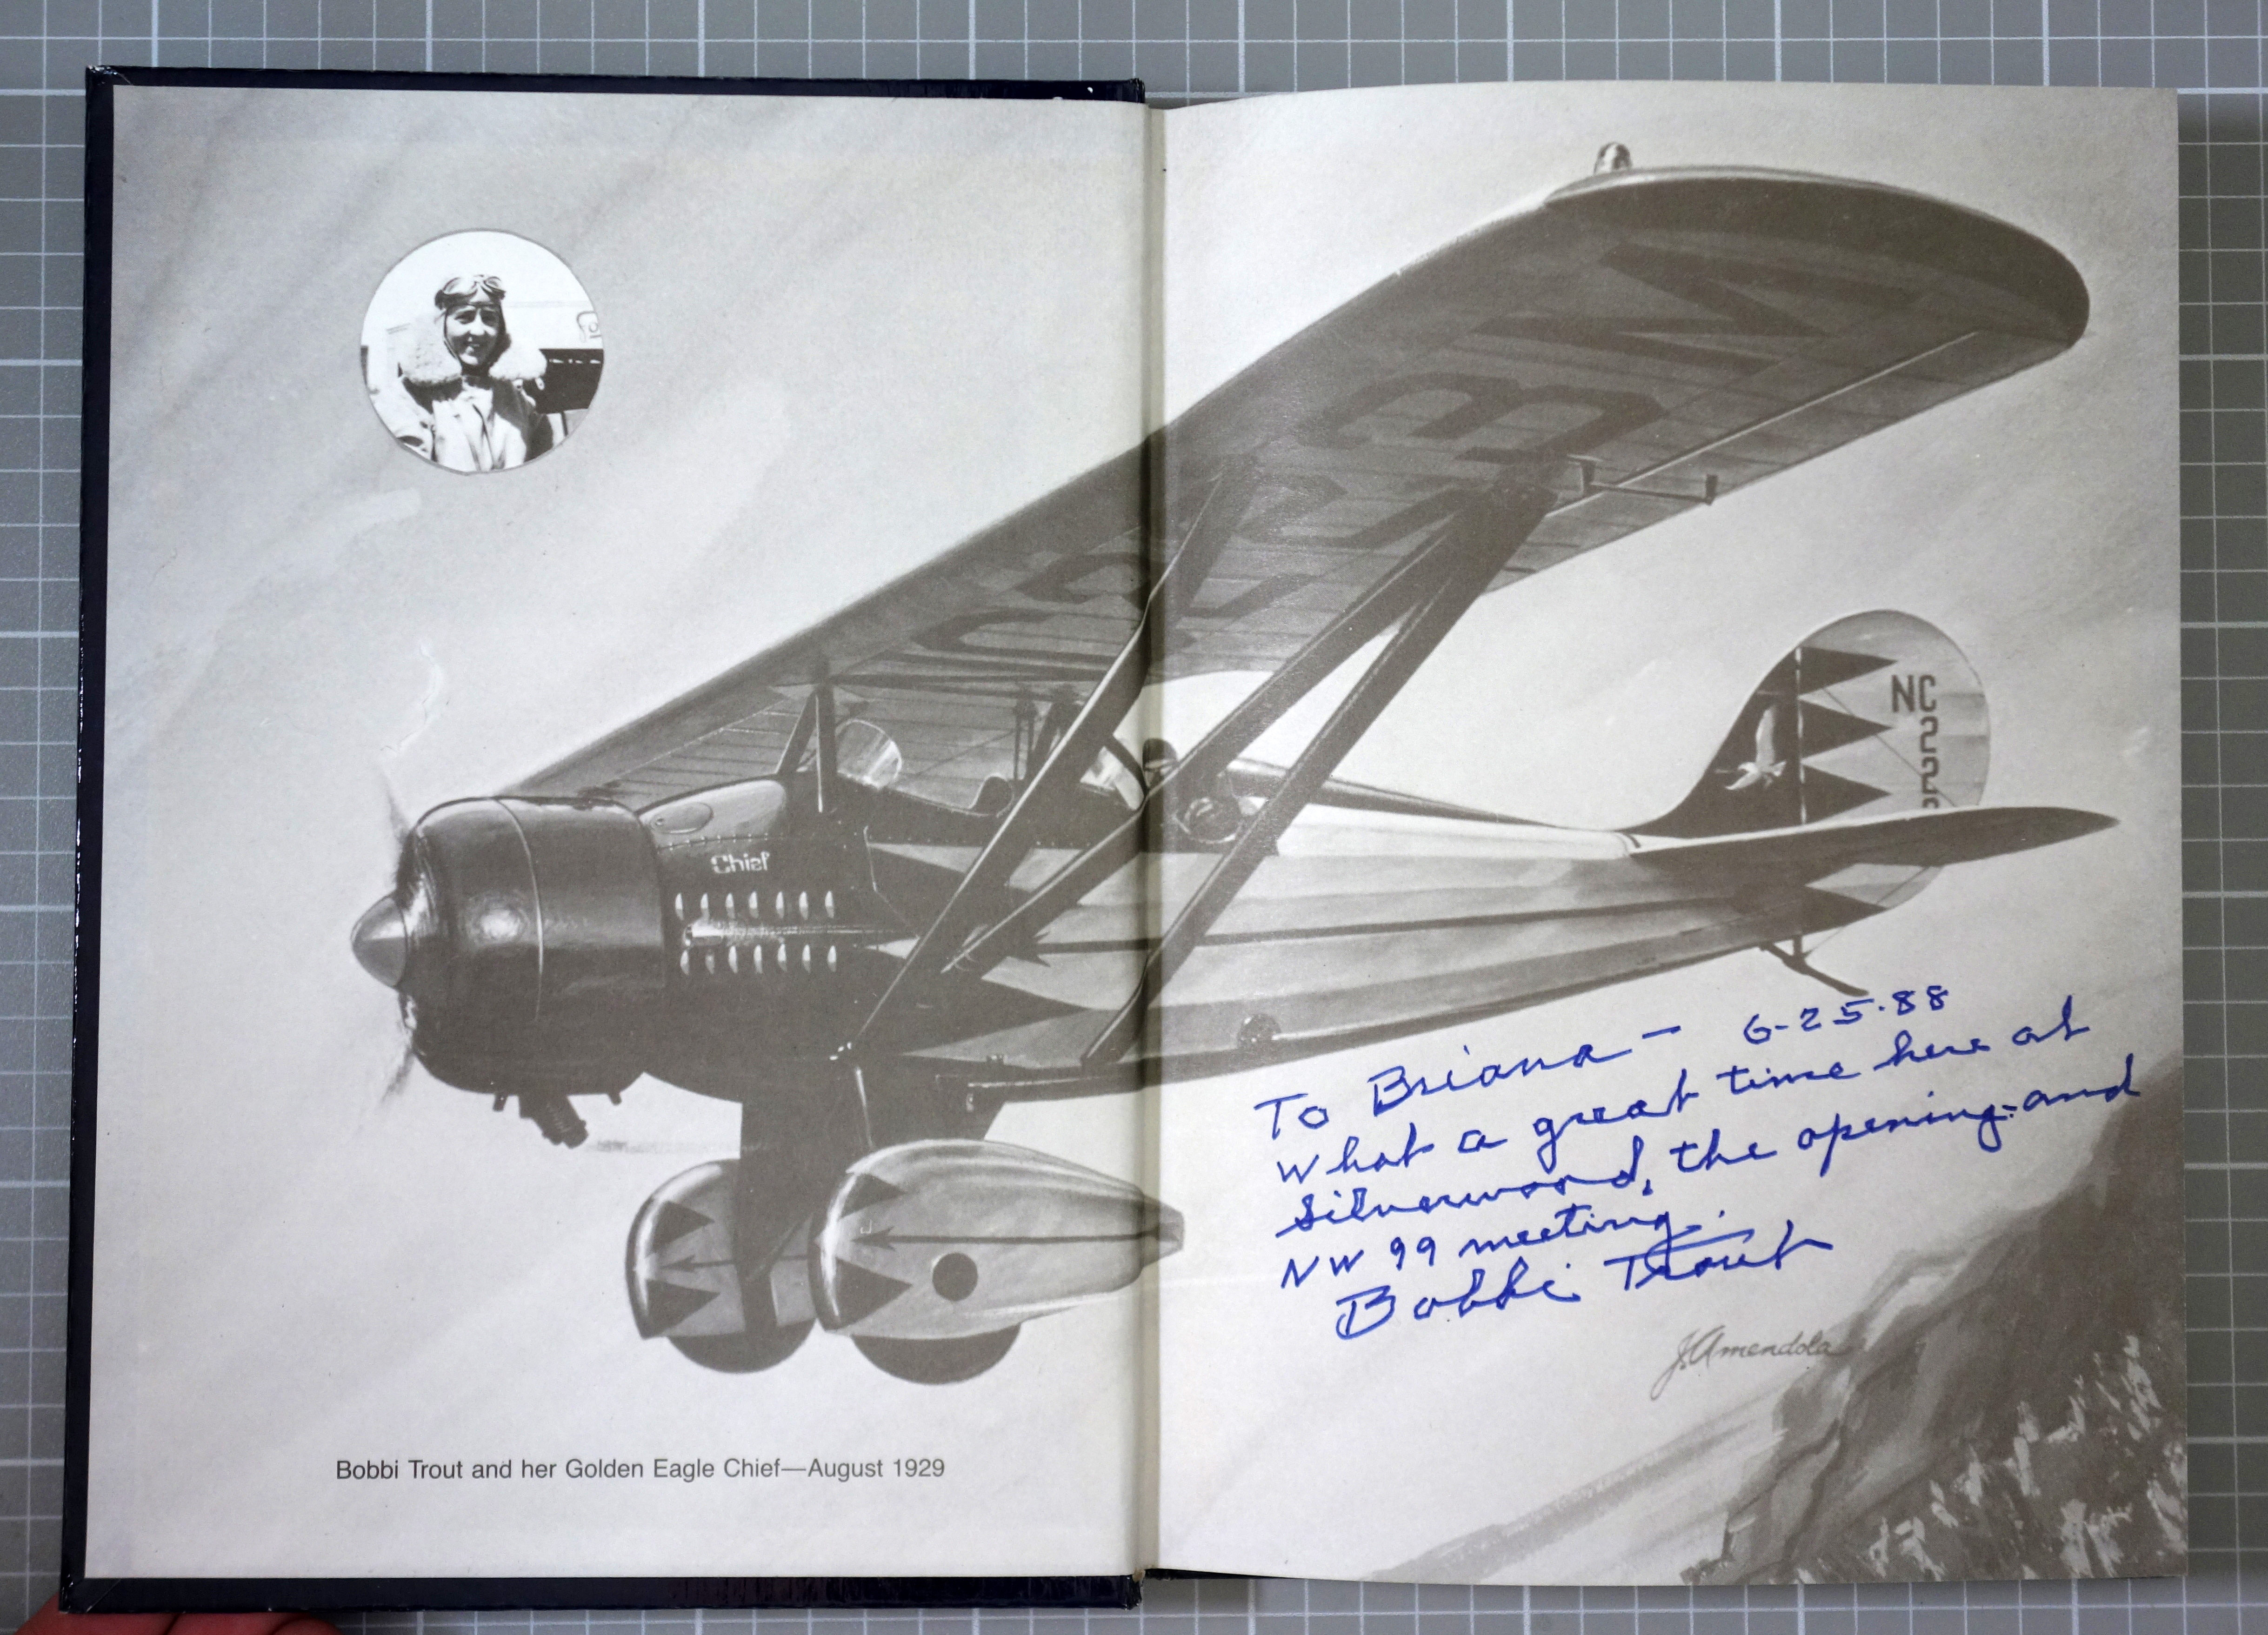 Chief
NC
2
2
Bobbi Trout and her Golden Eagle Chief—August 1929
To Briana — 6-25-88
What a great time here at
Silverwood, the opening and
NW 99 meeting.
Bobbi Trout
J. Amendola